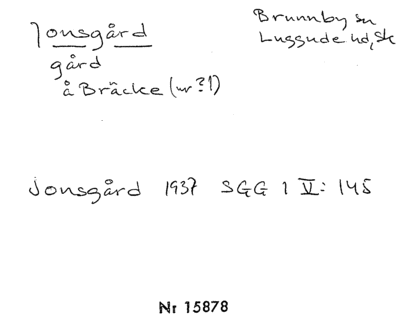 Jonsgård
gård
å Bräcke (nr ?1)
Brunnby sn
Luggude hd, Sk
Jonsgård 1937 SGG 1 V: 145
Nr 15878